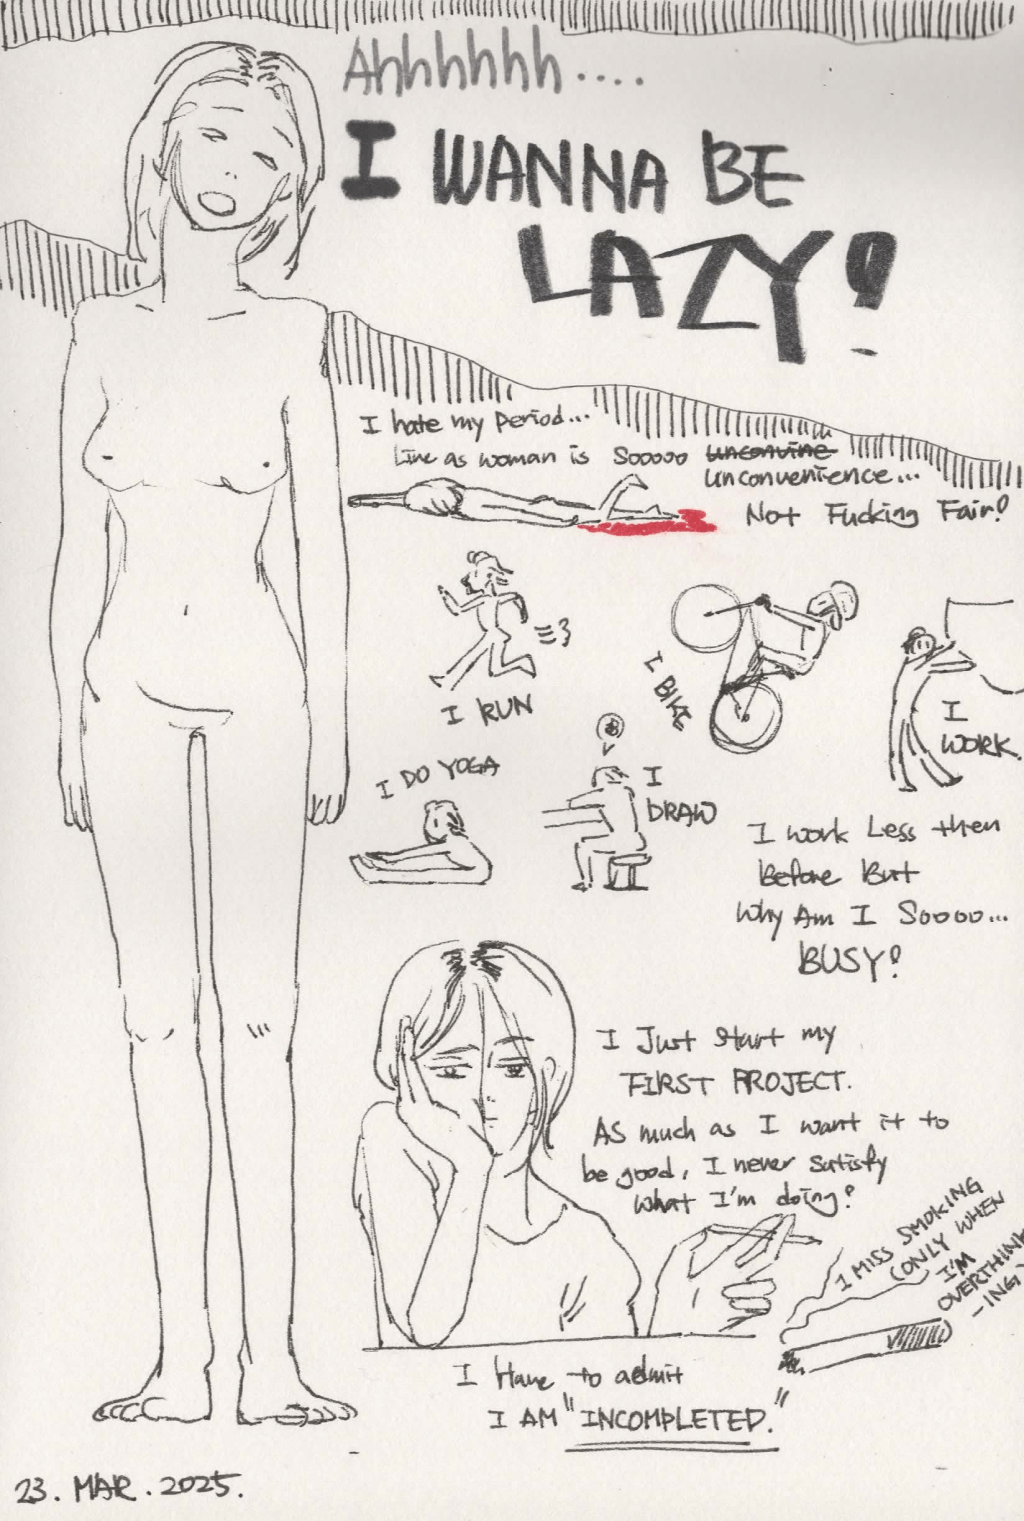 Ahhhhhh....
I WANNA BE
LAZY!
I hate my period...
as woman is Sooooo
unconvenience...
Not Fucking Fair!
I RUN
I BIKE
I
WORK.
I DO YOGA
I
DRAW
I work Less then
Before But
Why Am I Soooo...
BUSY?
I Just start my
FIRST PROJECT.
As much as I want it to
be good, I never satisfy
what I'm doing?
I MISS SMOKING
(ONLY WHEN
I'M
OVERTHINK
-ING)
I Have to admit
I AM "INCOMPLETED."
23. MAR. 2025.